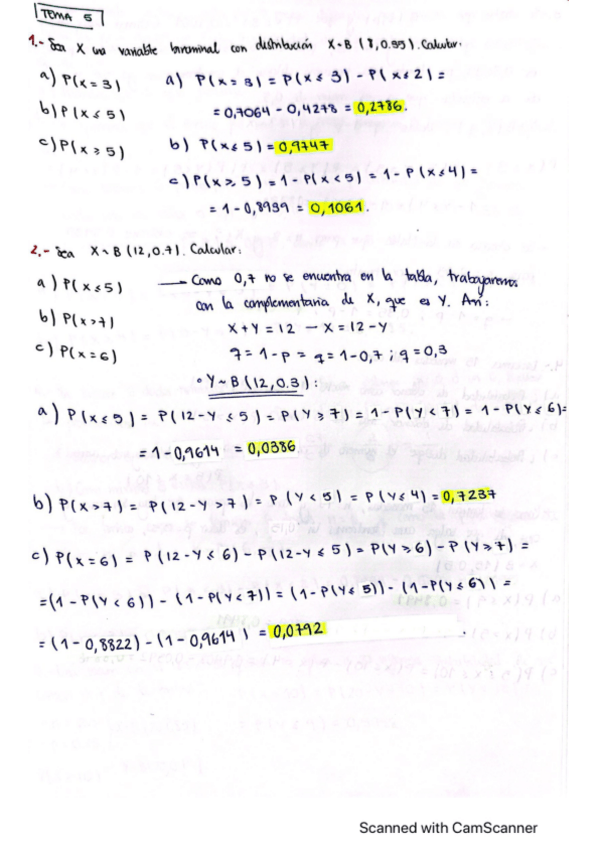 TEMA 5
1.- Sea X una variable binominal con distribución X~B (8, 0.35). Calcular:
a) P(x = 3)
a) P(x = 3) = P(x ≤ 3) - P(x ≤ 2) =
= 0,7064 - 0,4278 = 0,2786.
b) P(x ≤ 5)
b) P(x ≤ 5) = 0,9747
c) P(x ≥ 5)
c) P(x ≥ 5) = 1 - P(x < 5) = 1 - P(x ≤ 4) =
= 1 - 0,8939 = 0,1061.
2.- Sea X ~ B (12, 0.7). Calcular:
a) P(x ≤ 5)
→ Como 0,7 no se encuentra en la tabla, trabajaremos
con la complementaria de X, que es Y. Así:
b) P(x > 7)
X + Y = 12 — X = 12 - Y
c) P(x = 6)
q = 1 - p = q = 1 - 0,7 ; q = 0,3
• Y ~ B (12, 0.3) :
a) P(x ≤ 5) = P(12 - Y ≤ 5) = P(Y ≥ 7) = 1 - P(Y < 7) = 1 - P(Y ≤ 6) =
= 1 - 0,9614 = 0,0386
b) P(x > 7) = P(12 - Y > 7) = P(Y < 5) = P(Y ≤ 4) = 0,7237
c) P(x = 6) = P(12 - Y ≤ 6) - P(12 - Y ≤ 5) = P(Y ≥ 6) - P(Y ≥ 7) =
= (1 - P(Y < 6)) - (1 - P(Y < 7)) = (1 - P(Y ≤ 5)) - (1 - P(Y ≤ 6)) =
= (1 - 0,8822) - (1 - 0,9614) = 0,0792
Scanned with CamScanner